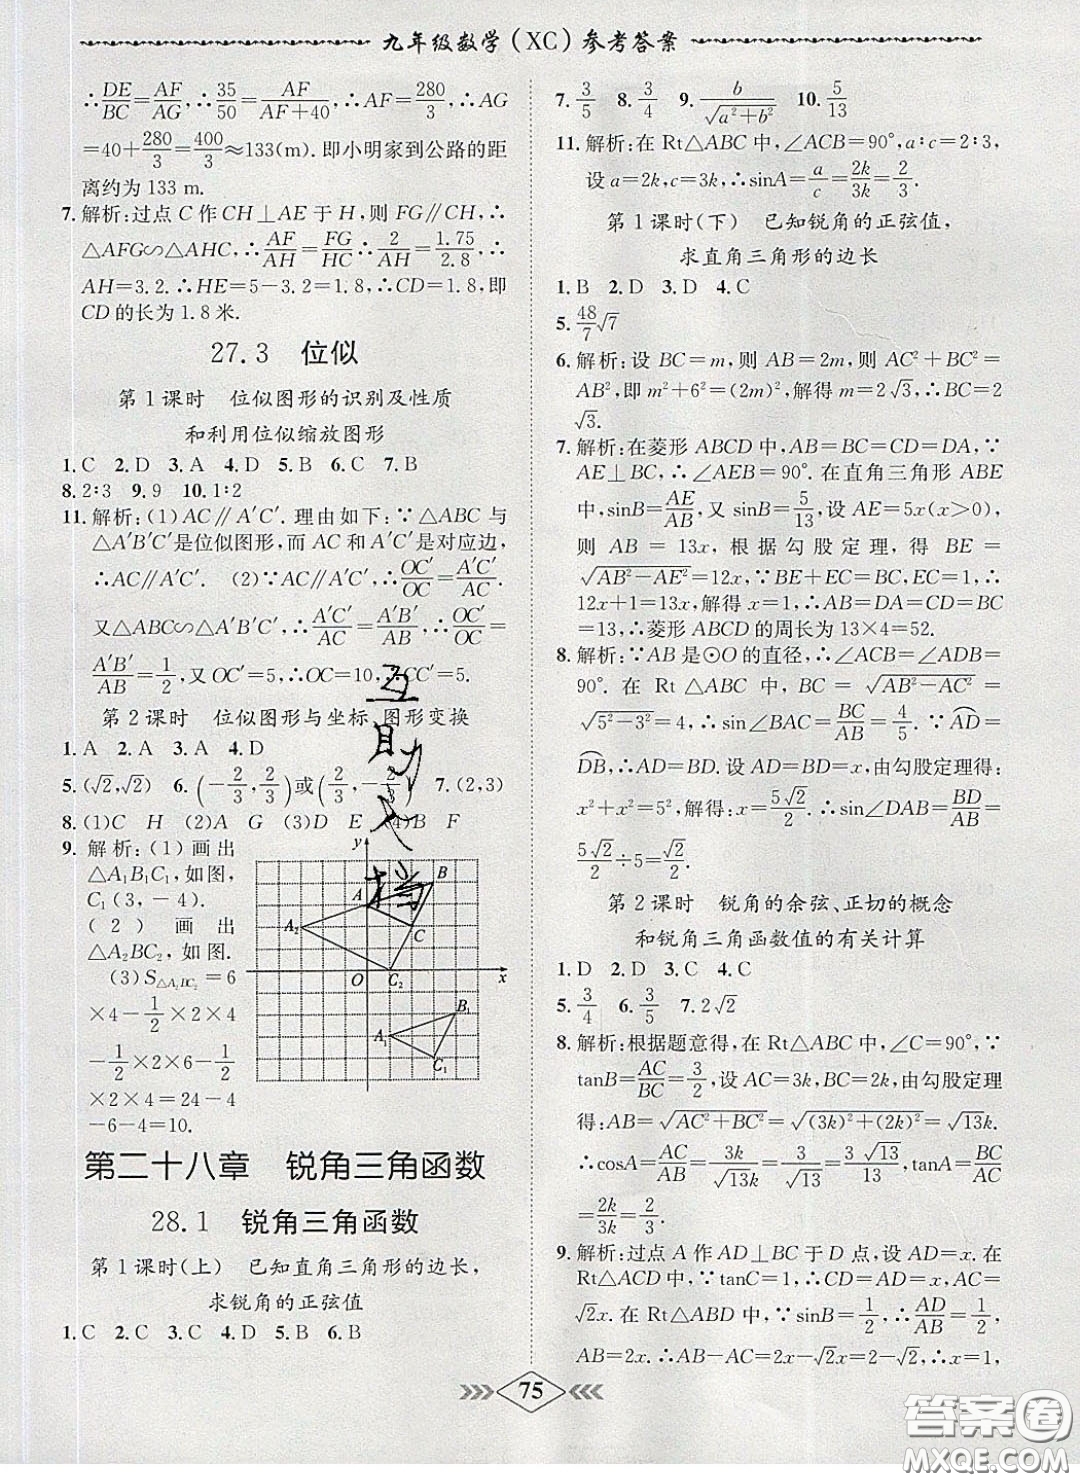 九年级数学(XC)参考答案
∴DE/BC=AF/AG,∴35/50=AF/(AF+40),∴AF=280/3,∴AG
=40+280/3=400/3≈133(m).即小明家到公路的距
离约为 133 m.
7.解析:过点 C 作 CH⊥AE 于 H,则 FG∥CH,∴
△AFG∽△AHC,∴AF/AH=FG/HC,∴2/AH=1.75/2.8,∴
AH=3.2.∴HE=5-3.2=1.8,∴CD=1.8,即
CD 的长为 1.8 米.
27.3 位似
第1课时 位似图形的识别及性质
和利用位似缩放图形
1.C 2.D 3.A 4.D 5.B 6.C 7.B
8.2∶3 9.9 10.1∶2
11.解析:(1)AC∥A′C′.理由如下:∵△ABC 与
△A′B′C′是位似图形,而 AC 和 A′C′是对应边,
∴AC∥A′C′. (2)∵AC∥A′C′,∴OC′/OC=A′C′/AC.
又△ABC∽△A′B′C′,∴A′C′/AC=A′B′/AB,∴OC′/OC=
A′B′/AB=1/2,又 OC′=5,∴OC=10,∴CC′=5.
第2课时 位似图形与坐标、图形变换
1.A 2.A 3.A 4.D
5.(√2,√2) 6.(-2/3,2/3)或(2/3,-2/3) 7.(2,3)
8.(1)C H (2)A G (3)D E (4)B F
9.解析:(1)画出
△A₁B₁C₁,如图,
C₁(3,-4).
(2)画出
△A₂BC₂,如图.
(3)S△A₂BC₂=6
×4-1/2×2×4
-1/2×2×6-1/2
×2×4=24-4
-6-4=10.
y
B
A
A₂
C
O
C₂
x
B₁
A₁
C₁
互助文档
第二十八章 锐角三角函数
28.1 锐角三角函数
第1课时(上) 已知直角三角形的边长,
求锐角的正弦值
1.C 2.C 3.C 4.D 5.B 6.B
7.3/5 8.3/4 9.b/√(a²+b²) 10.5/13
11.解析:在 Rt△ABC 中,∠ACB=90°,a∶c=2∶3,
设 a=2k,c=3k,∴sinA=a/c=2k/3k=2/3.
第1课时(下) 已知锐角的正弦值,
求直角三角形的边长
1.B 2.D 3.D 4.C
5.48/7√7
6.解析:设 BC=m,则 AB=2m,则 AC²+BC²=
AB²,即 m²+6²=(2m)²,解得 m=2√3,∴BC=2
√3.
7.解析:在菱形 ABCD 中,AB=BC=CD=DA,∵
AE⊥BC,∴∠AEB=90°.在直角三角形 ABE
中,sinB=AE/AB,又 sinB=5/13,设 AE=5x(x>0),
则 AB=13x,根据勾股定理,得 BE=
√(AB²-AE²)=12x,∵BE+EC=BC,EC=1,∴
12x+1=13x,解得 x=1,∴AB=DA=CD=BC
=13,∴菱形 ABCD 的周长为 13×4=52.
8.解析:∵AB 是⊙O 的直径,∴∠ACB=∠ADB=
90°. 在 Rt△ABC 中,BC=√(AB²-AC²)=
√(5²-3²)=4,∴sin∠BAC=BC/AB=4/5.∵A͡D=
D͡B,∴AD=BD.设 AD=BD=x,由勾股定理得:
x²+x²=5²,解得:x=5√2/2.∴sin∠DAB=BD/AB=
5√2/2÷5=√2/2.
第2课时 锐角的余弦、正切的概念
和锐角三角函数值的有关计算
1.D 2.D 3.C 4.C
5.3/4 6.3/5 7.2√2
8.解析:根据题意得,在 Rt△ABC 中,∠C=90°,∵
tanB=AC/BC=3/2,设 AC=3k,BC=2k,由勾股定理
得:AB=√(AC²+BC²)=√((3k)²+(2k)²)=√13k.
∴cosA=AC/AB=3k/√13k=3/√13=3√13/13,tanA=BC/AC=
2k/3k=2/3.
9.解析:过点 A 作 AD⊥BC 于 D 点,设 AC=x.在
Rt△ACD 中,∵tanC=1,∴CD=AD=x,AC=
√2x.在 Rt△ABD 中,∵sinB=1/2,∴AD/AB=1/2,
AB=2x.∴AB-AC=2x-√2x=2-√2,∴x=1,
75
答案圈
MXQE.COM